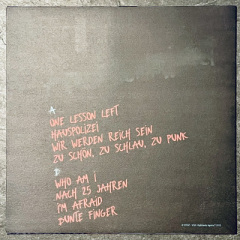 A
ONE LESSON LEFT
HAUSPOLIZEI
WIR WERDEN REICH SEIN
ZU SCHÖN, ZU SCHLAU, ZU PUNK
B
WHO AM I
NACH 25 JAHREN
I'M AFRAID
BUNTE FINGER